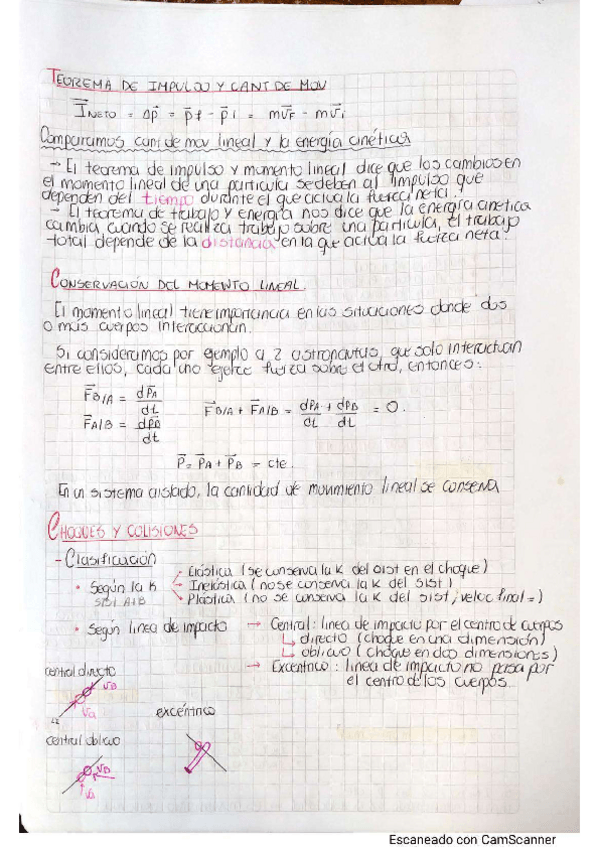 TEOREMA DE IMPULSO Y CANT DE MOV
I⃗NETO = Δp⃗ = p⃗f - p⃗i = mv⃗F - mv⃗i
Comparamos cant de mov lineal y la energía cinética
→ El teorema de impulso y momento lineal dice que los cambios en
el momento lineal de una partícula se deben al impulso que
dependen del tiempo durante el que actua la fuerza neta.
→ El teorema de trabajo y energía nos dice que la energía cinetica
cambia, cuando se realiza trabajo sobre una partícula, el trabajo
total depende de la distancia en la que actua la fuerza neta.
CONSERVACIÓN DEL MOMENTO LINEAL.
El momento lineal tiene importancia en las situaciones donde dos
o más cuerpos interaccionan.
Si consideramos por ejemplo a 2 astronautas, que solo interactuan
entre ellos, cada uno ejerce fuerza sobre el otro, entonces:
F⃗B/A = dp⃗A/dt
F⃗A/B = dp⃗B/dt
F⃗B/A + F⃗A/B = dp⃗A/dt + dp⃗B/dt = 0.
P⃗ = p⃗A + p⃗B = cte.
En un sistema aislado, la cantidad de movimiento lineal se conserva
CHOQUES Y COLISIONES
- Clasificación
• Según la K
SIST A+B
Elástica (se conserva la K del sist en el choque)
Inelástica (no se conserva la K del sist)
Plástica (no se conserva la K del sist, veloc final =)
• Según linea de impacto
→ Central: linea de impacto por el centro de cuerpos
↳ directo (choque en una dimensión)
↳ oblicuo (choque en dos dimensiones)
→ Excéntrico: linea de impacto no pasa por
el centro de los cuerpos.
central directo
VB
VA
excéntrico
central oblicuo
VB
Escaneado con CamScanner